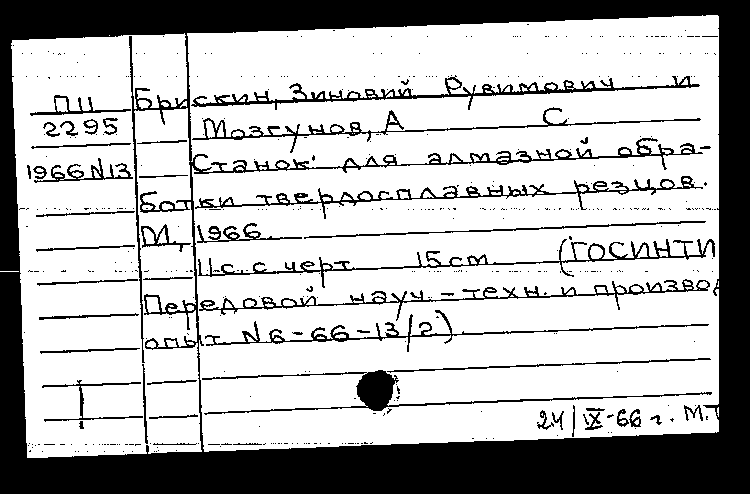 ПII Брискин, Зиновий Рувимович и
2295 Мозгунов, А С
1966 N13 Станок для алмазной обра-
ботки твердосплавных резцов.
М., 1966.
11 с. с черт. 15 см. (ГОСИНТИ
Передовой науч.-техн. и производ
опыт. N6-66-13/2).
24/IX-66 г. М.Т